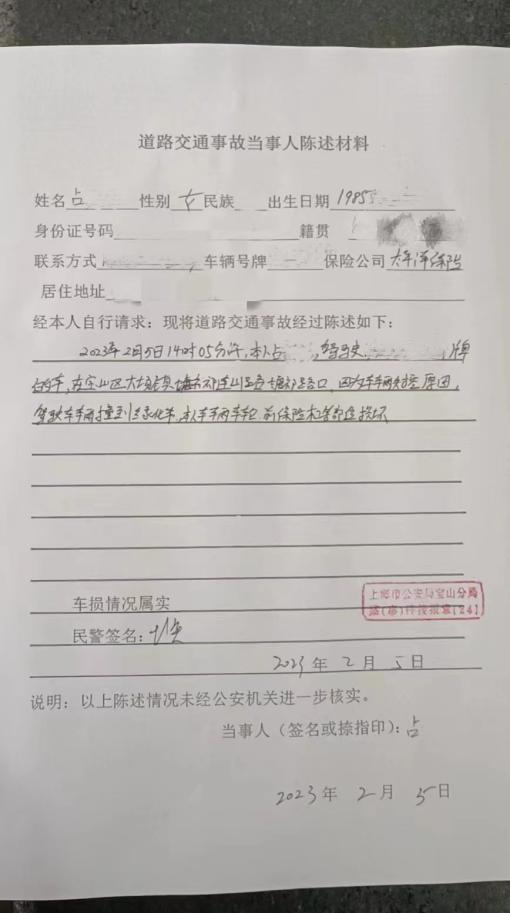 道路交通事故当事人陈述材料
姓名占 性别女民族 出生日期1985
身份证号码 籍贯
联系方式 车辆号牌 保险公司太平洋保险
居住地址
经本人自行请求：现将道路交通事故经过陈述如下：
2023年2月5日14时05分许,本人占 ,驾驶 ,牌
的车,在宝山区大场镇 路口,因为车辆失控原因,
驾驶车辆撞到绿化带,本人车辆车轮、前保险杠等部位损坏
车损情况属实
上海市公安局宝山分局
民警签名：
2023年2月5日
说明：以上陈述情况未经公安机关进一步核实。
当事人（签名或捺指印）：占
2023年 2月 5日